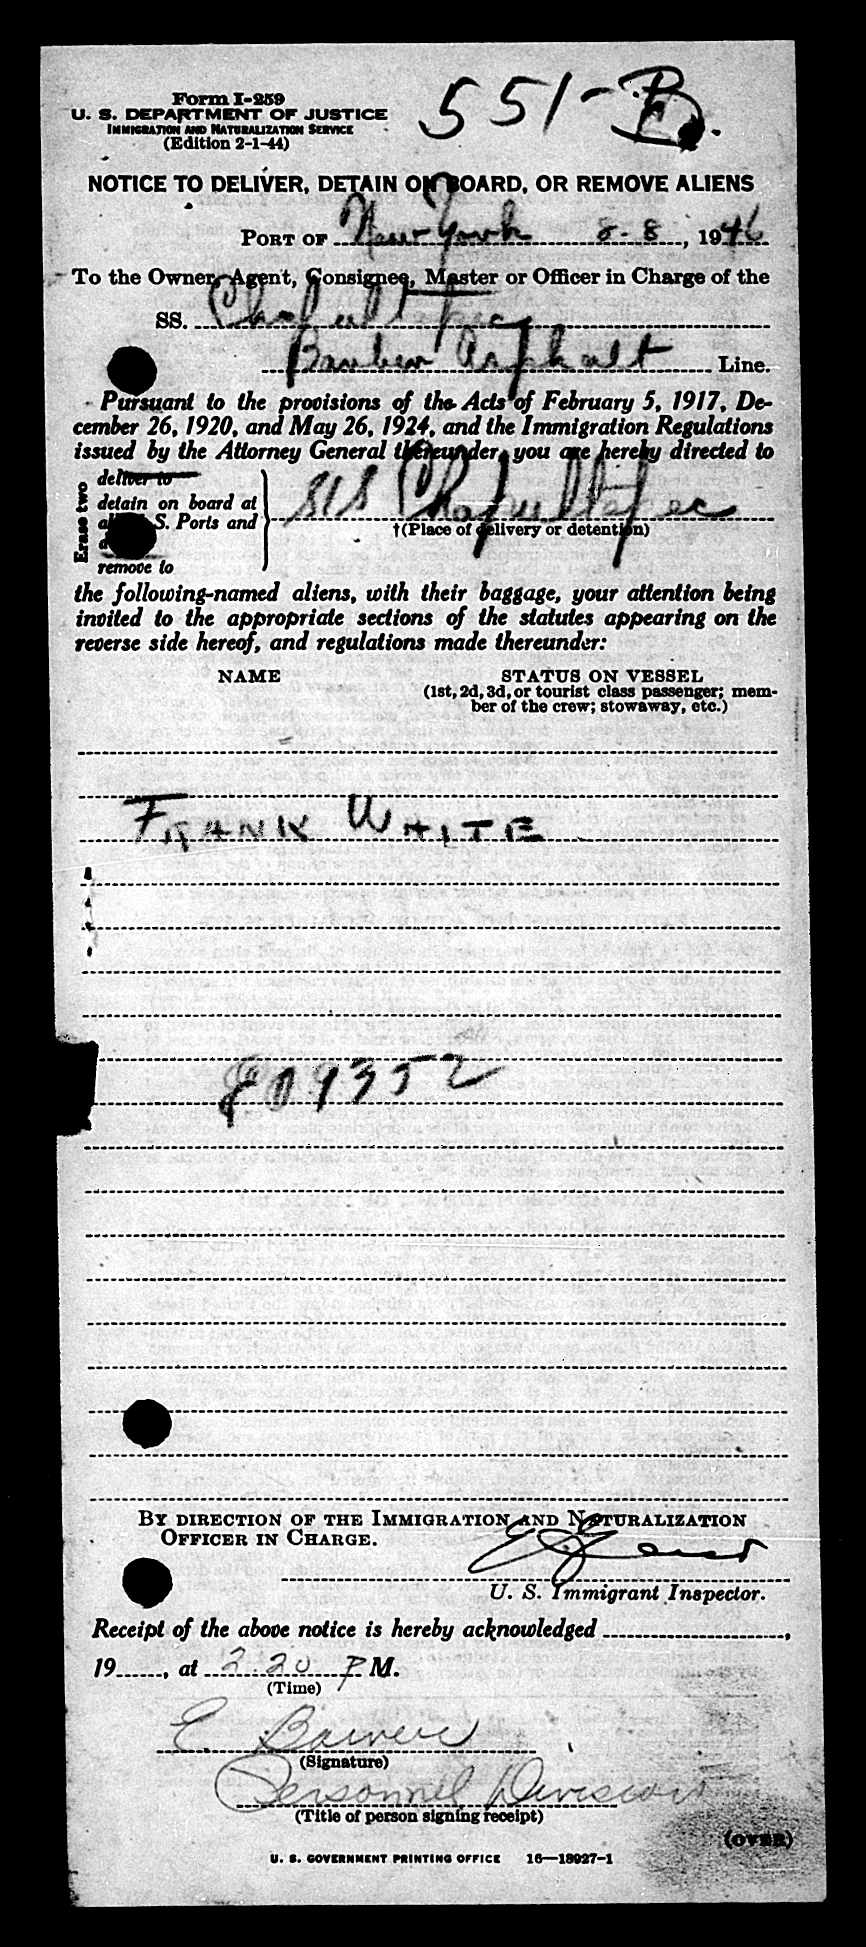 Form I-259
551-B.
U. S. DEPARTMENT OF JUSTICE
IMMIGRATION AND NATURALIZATION SERVICE
(Edition 2-1-44)
NOTICE TO DELIVER, DETAIN ON BOARD, OR REMOVE ALIENS
PORT OF New York 8-8, 1946
To the Owner, Agent, Consignee, Master or Officer in Charge of the
SS. Chapultepec
Barber Asphalt Line.
Pursuant to the provisions of the Acts of February 5, 1917, De-
cember 26, 1920, and May 26, 1924, and the Immigration Regulations
issued by the Attorney General thereunder, you are hereby directed to
Erase two
deliver to
detain on board at
S. Ports and
remove to
S/S Chapultepec
†(Place of delivery or detention)
the following-named aliens, with their baggage, your attention being
invited to the appropriate sections of the statutes appearing on the
reverse side hereof, and regulations made thereunder:
NAME STATUS ON VESSEL
(1st, 2d, 3d, or tourist class passenger; mem-
ber of the crew; stowaway, etc.)
FRANK WHITE
809352
BY DIRECTION OF THE IMMIGRATION AND NATURALIZATION
OFFICER IN CHARGE.
U. S. Immigrant Inspector.
Receipt of the above notice is hereby acknowledged ,
19 , at 2:20 P M.
(Time)
E.
(Signature)
Personnel Division
(Title of person signing receipt)
(OVER)
U. S. GOVERNMENT PRINTING OFFICE 16—18927-1